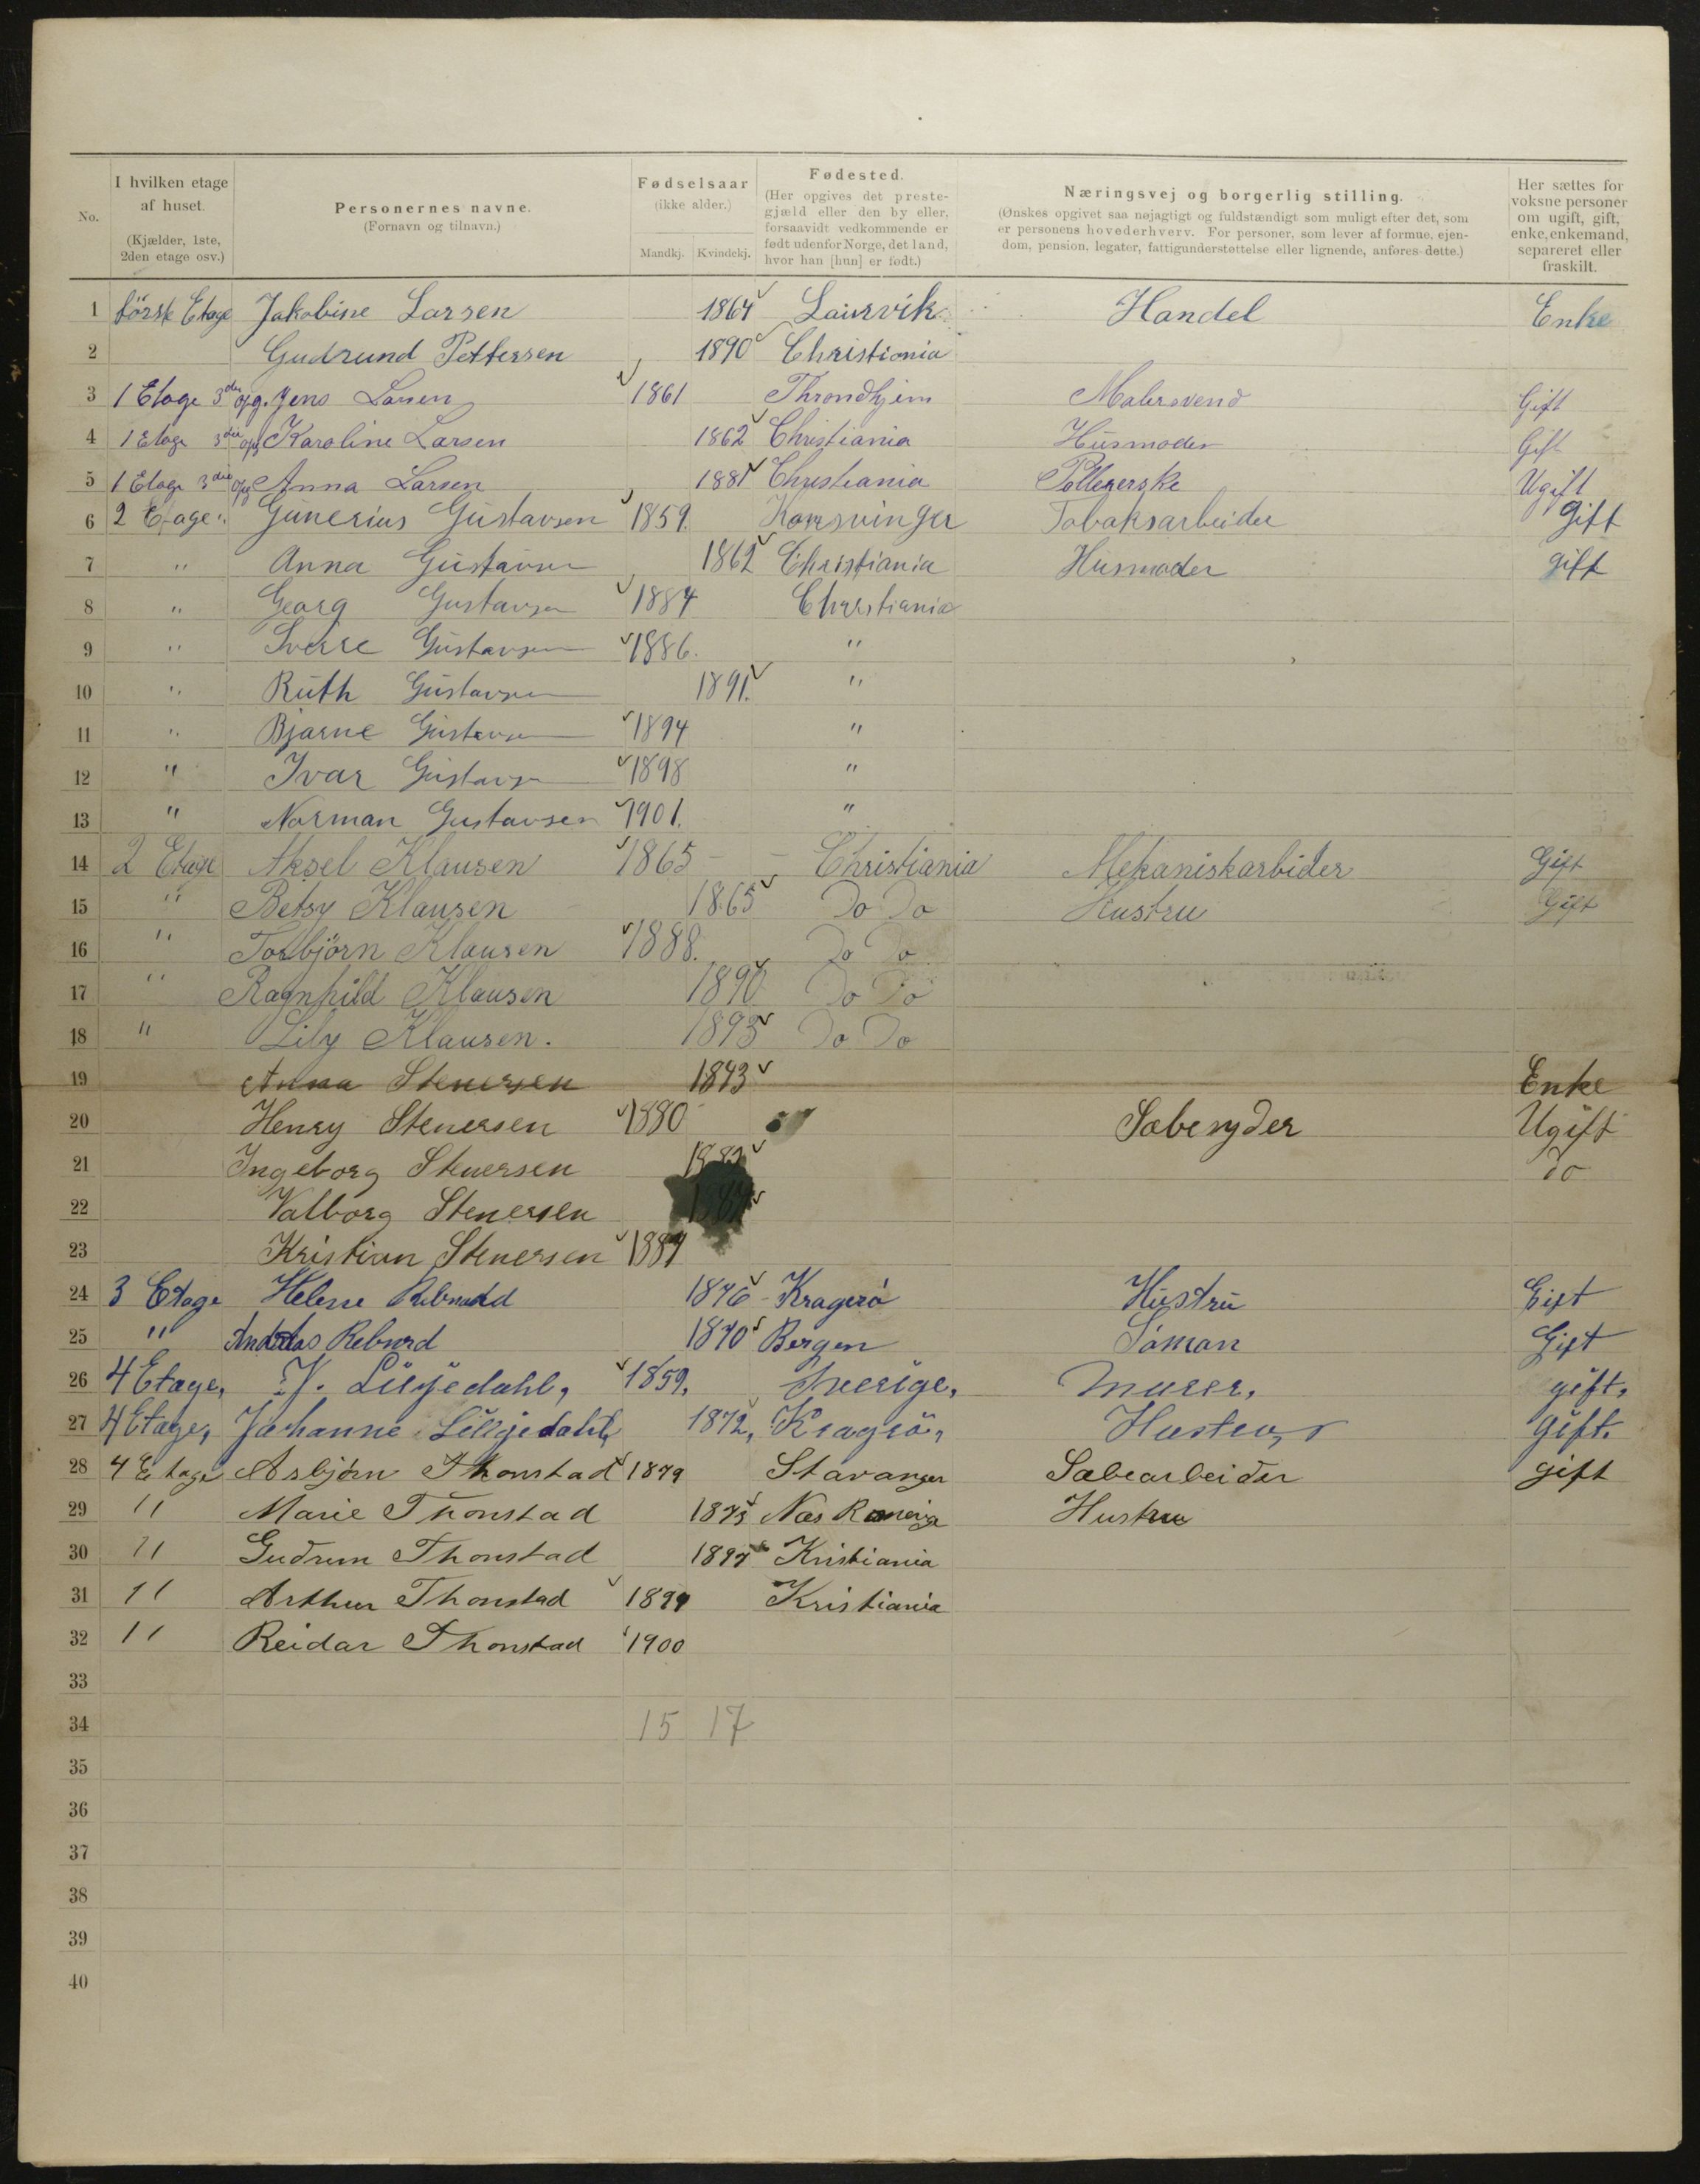 No.
I hvilken etage af huset. (Kjælder, 1ste, 2den etage osv.)
Personernes navne. (Fornavn og tilnavn.)
Fødselsaar (ikke alder.) Mandkj. Kvindekj.
Fødested. (Her opgives det prestegjæld eller den by eller, forsaavidt vedkommende er født udenfor Norge, det land, hvor han [hun] er født.)
Næringsvej og borgerlig stilling. (Ønskes opgivet saa nøjagtigt og fuldstændigt som muligt efter det, som er personens hovederhverv. For personer, som lever af formue, ejendom, pension, legater, fattigunderstøttelse eller lignende, anføres dette.)
Her sættes for voksne personer om ugift, gift, enke, enkemand, separeret eller fraskilt.
1 første Etage Jakobine Larsen 1864 Laurvik Handel Enke
2 Gudrund Pettersen 1890 Christiania
3 1 Etage 3die opg. Jens Larsen 1861 Throndhjem Malersvend Gift
4 1 Etage 3die opg Karoline Larsen 1862 Christiania Husmoder Gift
5 1 Etage 3die opg Anna Larsen 1881 Christiania Pollererske Ugift
6 2 Etage " Gunerius Gustavsen 1859. Konsvinger Tobaksarbeider Gift
7 " Anna Gustavsen 1862 Christiania Husmoder gift
8 " Georg Gustavsen 1884 Christiania
9 " Sverre Gustavsen 1886. "
10 " Ruth Gustavsen 1891. "
11 " Bjarne Gustavsen 1894 "
12 " Ivar Gustavsen 1898 "
13 " Norman Gustavsen 1901. "
14 2 Etage Aksel Klausen 1865 - - Christiania Mekaniskarbider Gift
15 " Betsy Klausen 1865 Do Do Hustru Gift
16 " Torbjörn Klausen 1888. Do Do
17 " Ragnhild Klausen 1890 Do Do
18 " Lily Klausen. 1893 Do Do
19 Anna Stenersen 1843 Enke
20 Henry Stenersen 1880 Sæbesyder Ugift
21 Ingeborg Stenersen do
22 Valborg Stenersen
23 Kristian Stenersen
24 3 Etage Helene 1876 - Kragerø Hustru Gift
25 " Andreas 1870 Bergen Söman Gift
26 4 Etage, Liljedahl, 1859, Sverige, Murer, gift,
27 4 Etage, Johanne Lilljedahl, 1872, Kragrö, gift.
28 4 Etage Asbjörn Thonstad 1879 Stavanger Sæbearbeider gift
29 " Marie Thonstad 1875 Nes Romerige Hustru
30 " Gudrun Thonstad 1897 Kristiania
31 " Arthur Thonstad 1899 Kristiania
32 " Reidar Thonstad 1900
33
34 15 17
35
36
37
38
39
40